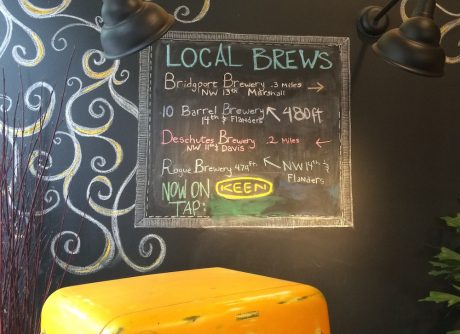 LOCAL BREWS
Bridgport Brewery .3 Miles
NW 13th Marshall
10 Barrel Brewery 480ft
14th & Flanders
Deschutes Brewery .2 Miles
NW 11th Davis
Rogue Brewery 479ft NW 14th &
Flanders
NOW ON KEEN
TAP: